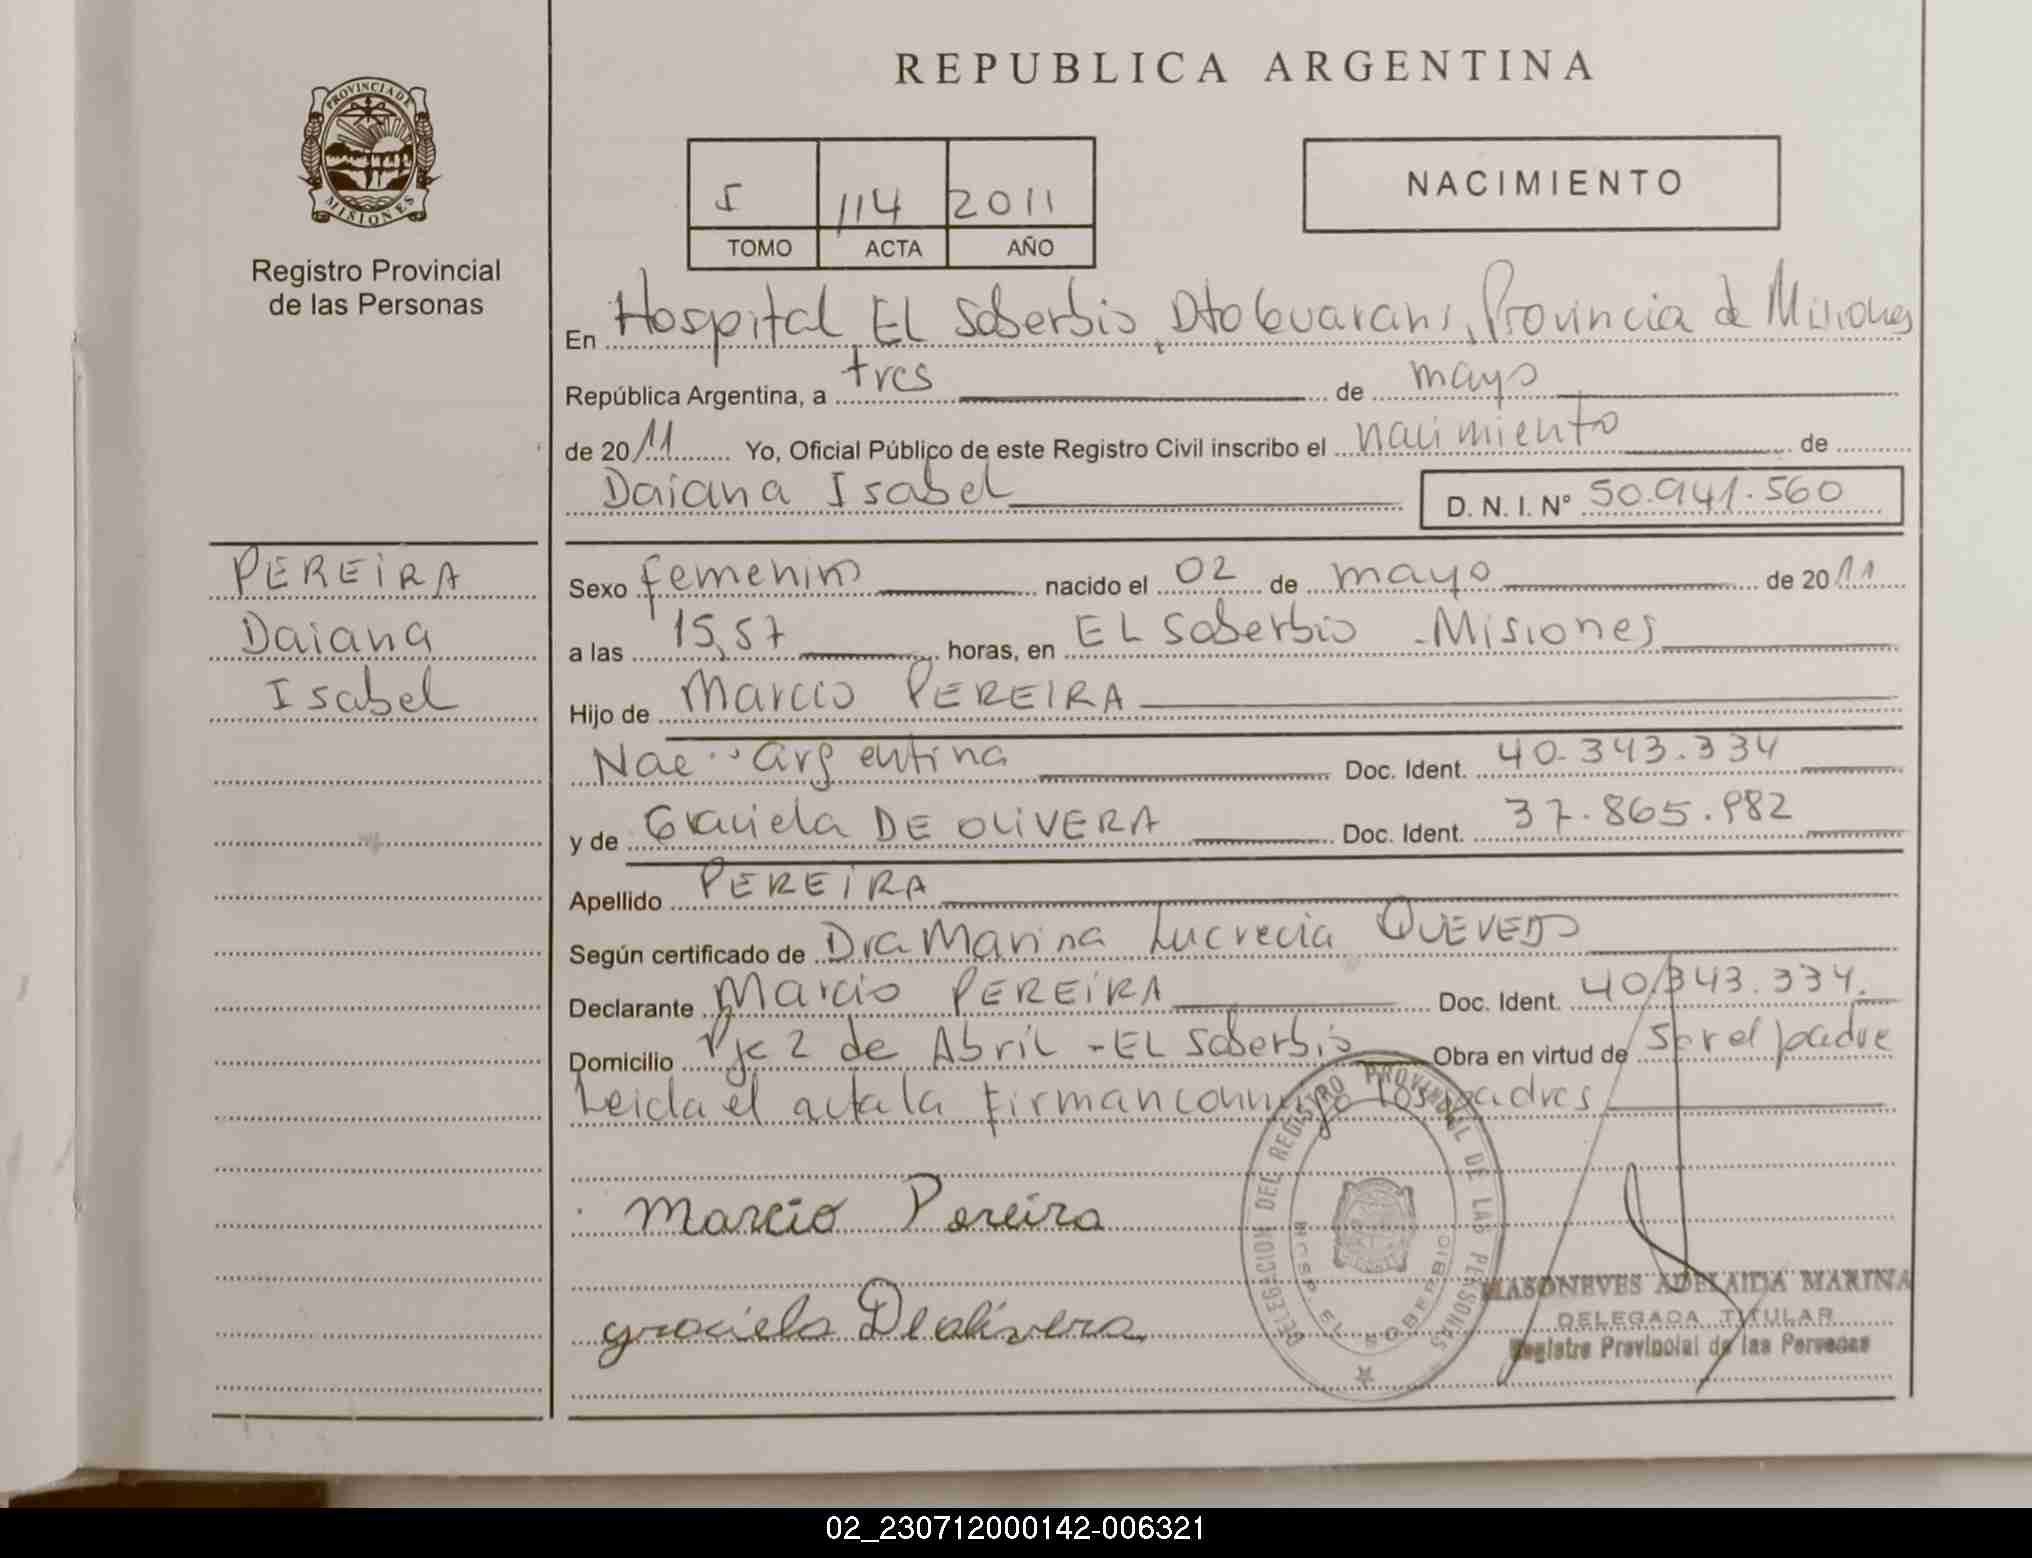 REPUBLICA ARGENTINA
PROVINCIA DE
MISIONES
Registro Provincial
de las Personas
I 114 2011
TOMO ACTA AÑO
NACIMIENTO
En Hospital El Soberbio, Dto Guarani, Provincia de Misiones
República Argentina, a tres de mayo
de 2011 Yo, Oficial Público de este Registro Civil inscribo el nacimiento de
Daiana Isabel D. N. I. Nº 50.941.560
PEREIRA
Daiana
Isabel
Sexo femenino nacido el 02 de mayo de 2011
a las 15,57 horas, en El Soberbio - Misiones
Hijo de Marcio PEREIRA
Nac.. argentina Doc. Ident. 40.343.334
y de Graciela DE OLIVERA Doc. Ident. 37.865.982
Apellido PEREIRA
Según certificado de Dra Marina Lucrecia QUEVEDO
Declarante Marcio PEREIRA Doc. Ident. 40.343.334.
Domicilio Pje 2 de Abril - El Soberbio Obra en virtud de ser el padre
Leida el acta la firman conmigo los padres
Marcio Pereira
graciela De olivera
DELEGACION DEL REGISTRO PROVINCIAL DE LAS PERSONAS
HOSP. EL SOBERBIO
MASONEVES ADELAIDA MARINA
DELEGADA TITULAR
Registro Provincial de las Personas
02_230712000142-006321